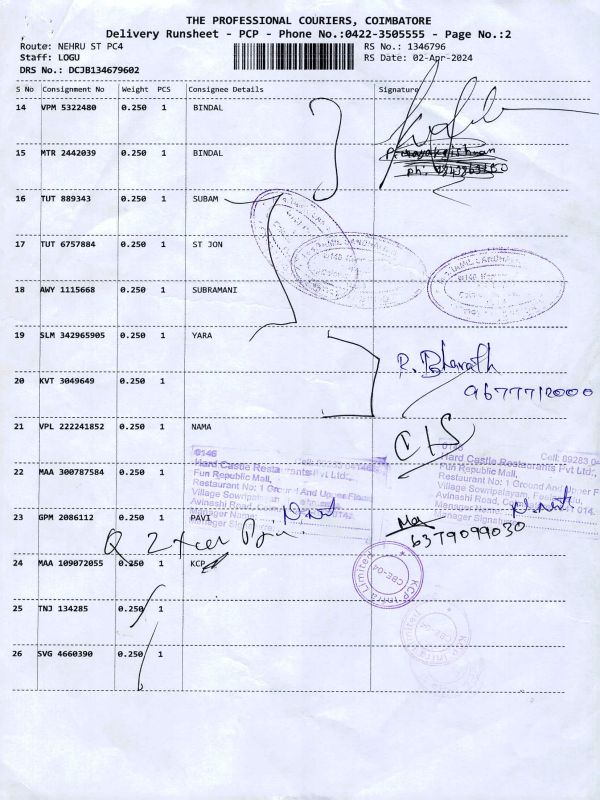 THE PROFESSIONAL COURIERS, COIMBATORE
Delivery Runsheet - PCP - Phone No.:0422-3505555 - Page No.:2
Route: NEHRU ST PC4 RS No.: 1346796
Staff: LOGU RS Date: 02-Apr-2024
DRS No.: DCJB134679602
S No Consignment No Weight PCS Consignee Details Signature
14 VPM 5322480 0.250 1 BINDAL
15 MTR 2442039 0.250 1 BINDAL
ph:
16 TUT 889343 0.250 1 SUBAM
17 TUT 6757884 0.250 1 ST JON
18 AWY 1115668 0.250 1 SUBRAMANI
19 SLM 342965905 0.250 1 YARA
R. Bharath
20 KVT 3049649 0.250 1
9677712000
21 VPL 222241852 0.250 1 NAMA
0146
Hard Castle Restaurants Pvt Ltd.,
Fun Republic Mall,
Cell: 89283 0
Hard Castle Restaurants Pvt Ltd.,
Fun Republic Mall,
Restaurant No: 1 Ground And Upper F
22 MAA 300787584 0.250 1
Restaurant No: 1 Ground And Upper Floor
Village Sowripalayam,
Avinashi Road,
Manager Name:
Village Sowripalayam,
Avinashi Road,
Manager Name:
Manager Signature
23 GPM 2086112 0.250 1 PAVI
6379099030
24 MAA 109072055 0.250 1 KCP
KCP Infra Limited
CBE-04
25 TNJ 134285 0.250 1
KCP Infra Limited
26 SVG 4660390 0.250 1